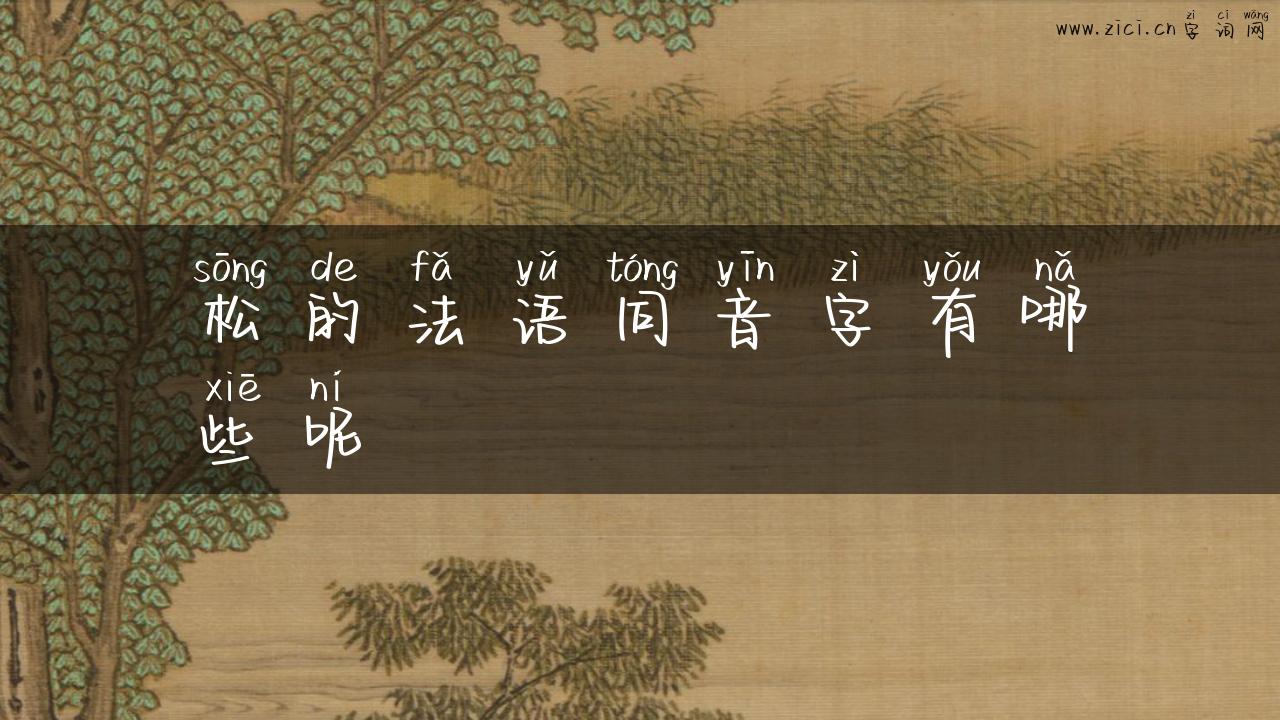 zì cí wǎng
www.zici.cn 字词网
sōng de fǎ yǔ tóng yīn zì yǒu nǎ
松的法语同音字有哪
xiē ní
些呢